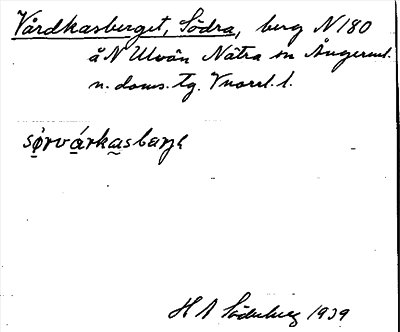 Vårdkasberget, Södra, berg N 180
å N Ulvön Nätra sn Ångerml.
n. doms. tg. Vnorrl. l.
sørvárkasbarjε
H A Söderberg 1939